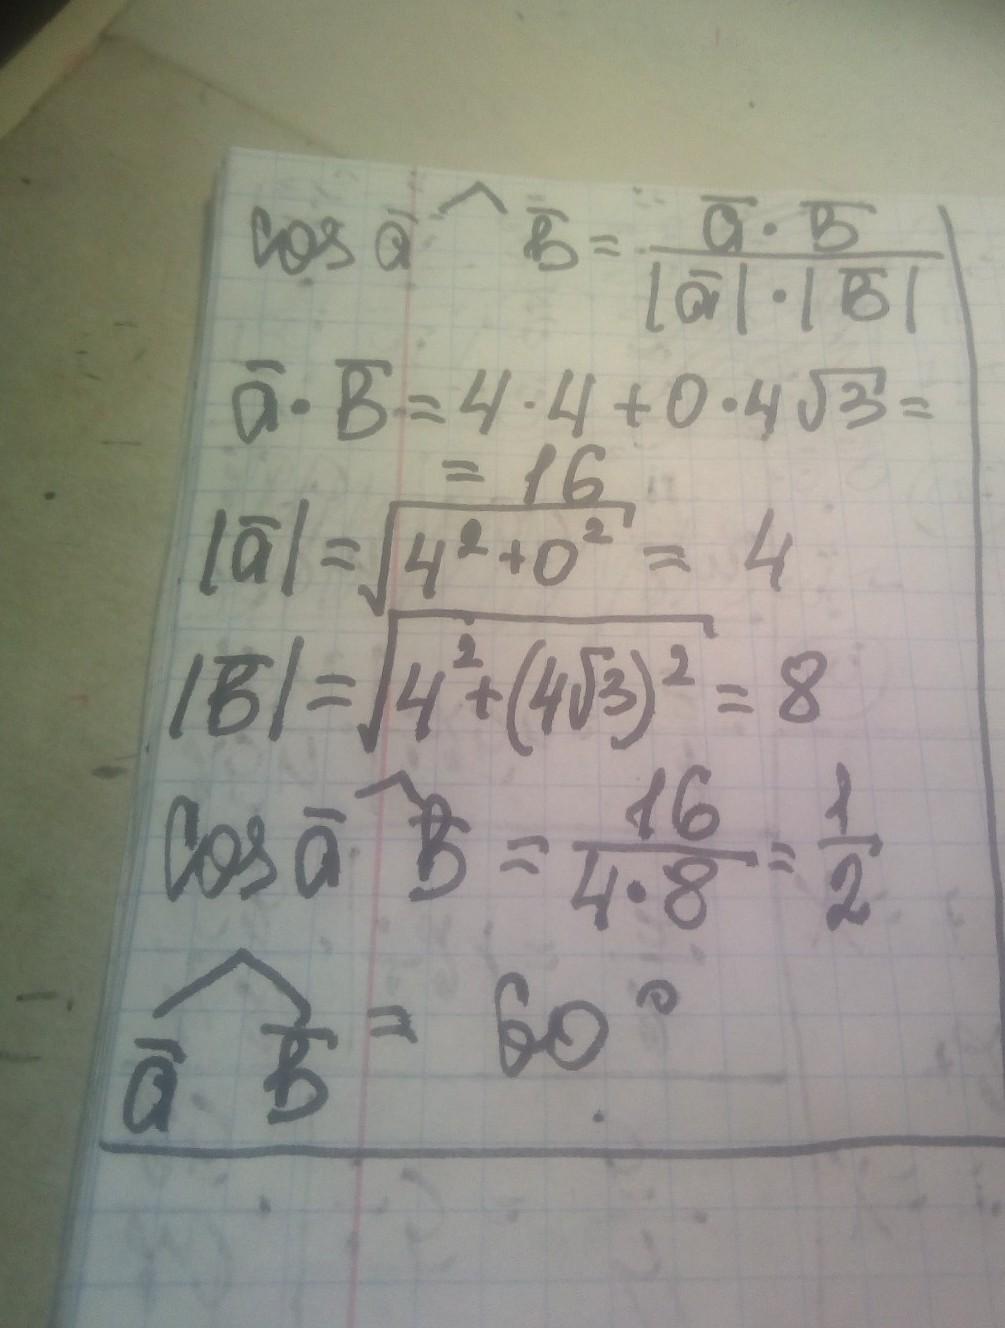 cos a̅ ^ B̅ = a̅ · B̅ / |a̅| · |B̅|
a̅ · B̅ = 4 · 4 + 0 · 4√3 =
= 16
|a̅| = √(4² + 0²) = 4
|B̅| = √(4² + (4√3)²) = 8
cos a̅ ^ B̅ = 16 / 4 · 8 = 1 / 2
a̅ ^ B̅ = 60°